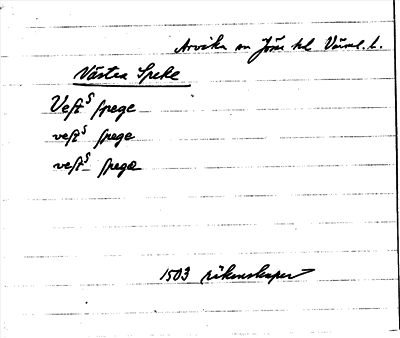 Arvika sn Jösse hd Värml. l.
Västra Speke
Vest^s spege
vest^s spege
vest^s spege
1503 räkenskaper